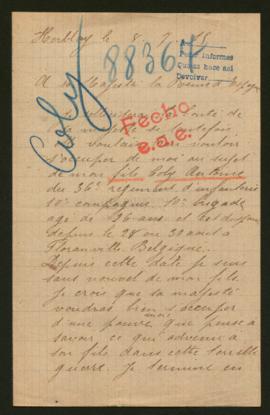 Herblay le 8
8836
Para informes
Devolver
Coly
A sa Majesté la Reine d'Espagne
Fecho
e.a.e.
bonté de
vouloir
s'occuper de moi au sujet
de mon fils Coly Antoine
du 36e régiment d'infanterie
10e compagnie 10e brigade
age de 26 ans et est disparu
depuis le 28 ou 30 août a
Floranville Belgique.
Depuis cette date je suis
sans nouvel de mon fils
je crois que sa majesté
voudras bien s'occuper
d'une pauvre mère que pense a
savoir ce qui advenu a
son fils dans cette terrible
guerre. Je termine en